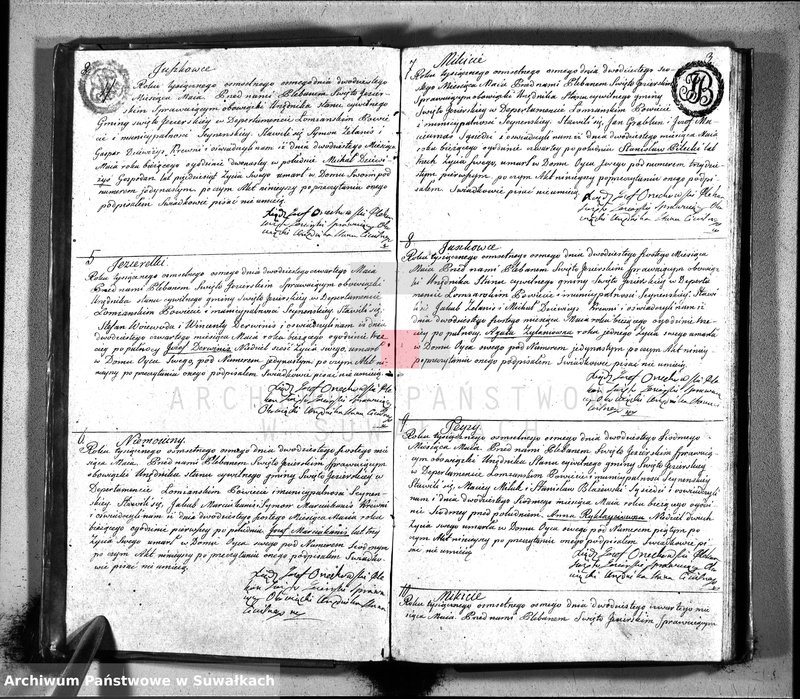 Juszkowce
Roku tysięcznego osmsetnego osmego dnia dwodziestego
Miesiąca Maia Przed nami Plebanem Swięto Jezier-
skim Sprawuiącym obowiązki Urzędnika stanu cywilnego
Gminy swięto Jezierskiey w Departamencie Łomzanskim Powie-
cie i municypalnosci Seynenskiey. Stawili się Symon Zelanis i
Gasper Dziewiżys, Krewni i oswiadczyli nam iż dnia dwodziestego Miesiąca
Maia roku bieżącego ogodzinie dwunastey w południe Michał Dziewi-
żys Gospodarz lat pięćdziesiąt Życia Swego umarł w Domu Swoim pod
numerem jedynastym po czym Akt ninieyszy po przeczytaniu onego
podpisałem Swiadkowie pisać nie umieią.
Xiądz Jozef Orzechowski Ple-
ban Swięto Jezierski Sprawuiący Obo-
wiązki Urzędnika Stanu Cywilnego
5 Jezierelki
Roku tysięcznego osmsetnego osmego dnia dwodziestego czwartego Maia
Przed nami Plebanem Swięto Jezierskim Sprawuiącym obowiązki
Urzędnika stanu cywilnego gminy Swięto Jezierskiey w Departamencie
Łomzanskim Powiecie i municypalnosci Seynenskiey Stawili się
Stefan Woiewoda i Wincenty Derwinis i oswiadczyli nam iż dnia
dwodziestego czwartego miesiąca Maia roku bieżącego ogodzinie trze-
ciey po południu Jozef Derwinis Niedziel sześć Życia swego, umarł
w Domu Oyca Swego, pod Numerem jedynastym po czym Akt ni-
nieyszy po przeczytaniu onego podpisałem Swiadkowie pisać nie umieią.
Xiądz Jozef Orzechowski Ple-
ban Swięto Jezierski Sprawuiący
Obowiązki Urzędnika Stanu Cywilnego
6 Niemowiny
Roku tysięcznego osmsetnego osmego dnia dwodziestego szostego mie-
siąca Maia Przed nami Plebanem Swięto Jezierskim Sprawuiącym
obowiązki Urzędnika stanu cywilnego gminy Swięto Jezierskiey w
Departamencie Łomzanskim Powiecie i municypalnosci Seynen-
skiey. Stawili się, Jakub Marcinkanis i Symon Marcinkanis Krewni
i oswiadczyli nam iż dnia dwodziestego szostego Miesiąca Maia roku
bieżącego ogodzinie pierwszey po południu Jozef Marcinkanis lat trzy
Życia Swego umarł w Domu Oyca swego pod Numerem siodmym
po czym Akt ninieyszy po przeczytaniu onego podpisałem Swiadko-
wie pisać nie umieią
Xiądz Jozef Orzechowski Ple-
ban Swięto Jezierski Sprawu-
iący Obowiązki Urzędnika Stanu
Cywilnego
3
7 Mikicie
Roku tysięcznego osmsetnego osmego dnia dwodziestego
Miesiąca Maia Przed nami Plebanem Swięto Jezierskim
Sprawuiącym obowiązki Urzędnika Stanu cywilnego gminy
Swięto Jezierskiey w Departamencie Łomzanskim Powiecie
i municypalnosci Seynenskiey. Stawili się, Jan i Jozef
Sąsiedzi i oswiadczyli nam iż dnia dwodziestego miesiąca Maia
roku bieżącego ogodzinie czwartey po południu Stanisław Pilecki lat
trzech Życia Swego, umarł w Domu Oyca Swego pod numerem trzydzie-
stym pierwszym po czym Akt ninieyszy po przeczytaniu onego podpi-
sałem. Swiadkowie pisać nie umieią
Xiądz Jozef Orzechowski Pleban
Swięto Jezierski Sprawuiący Obo-
wiązki Urzędnika Stanu Cywilnego
8 Juszkowce
Roku tysięcznego osmsetnego osmego dnia dwodziestego szostego Miesiąca
Maia Przed nami Plebanem Swięto Jezierskim Sprawuiącym obowiąz-
ki Urzędnika Stanu cywilnego gminy Swięto Jezierskiey w Departa-
mencie Łomzanskim Powiecie i municypalnosci Seynenskiey, Stawi-
li się Jakub Zelanis i Michał Dziewiżys Krewni i oswiadczyli nam iż
dnia dwodziestego szostego miesiąca Maia roku bieżącego ogodzinie trze-
ciey po południu, Agata roku jednego Życia swego umarła
w Domu Oyca swego pod Numerem jedynastym po czym Akt niniey-
szy po przeczytaniu onego podpisałem Swiadkowie pisać nie umieią
Xiądz Jozef Orzechowski Ple-
ban Swięto Jezierski Sprawuią-
cy Obowiązki Urzędnika Stanu
Cywilnego
9 Jeyzy
Roku tysięcznego osmsetnego osmego dnia dwodziestego siodmego
Miesiąca Maia Przed nami Plebanem Swięto Jezierskim Sprawuią-
cym obowiązki Urzędnika Stanu cywilnego gminy Swięto Jezierskiey
w Departamencie Łomzanskim Powiecie i municypalnosci Seynenskiey
Stawili się, Maciey Miluk i Stanisław Błażewski Sąsiedzi i oswiadczyli
nam iż dnia dwodziestego siodmego miesiąca Maia roku bieżącego ogodzi-
nie siodmey przed południem, Anna Niedziel dwóch
Życia swego umarła w Domu Oyca swego pod Numerem piątym po
czym Akt ninieyszy po przeczytaniu onego podpisałem Swiadkowie pi-
sać nie umieią
Xiądz Jozef Orzechowski Pleban
Swięto Jezierski Sprawuiący Obo-
wiązki Urzędnika Stanu Cywilnego
10 Mikicie
Roku tysięcznego osmsetnego osmego dnia dwodziestego czwartego mie-
siąca Maia. Przed nami Plebanem Swięto Jezierskim Sprawuiącym
ARCHIWUM PAŃSTWOWE
W SUWAŁKACH
Archiwum Państwowe w Suwałkach